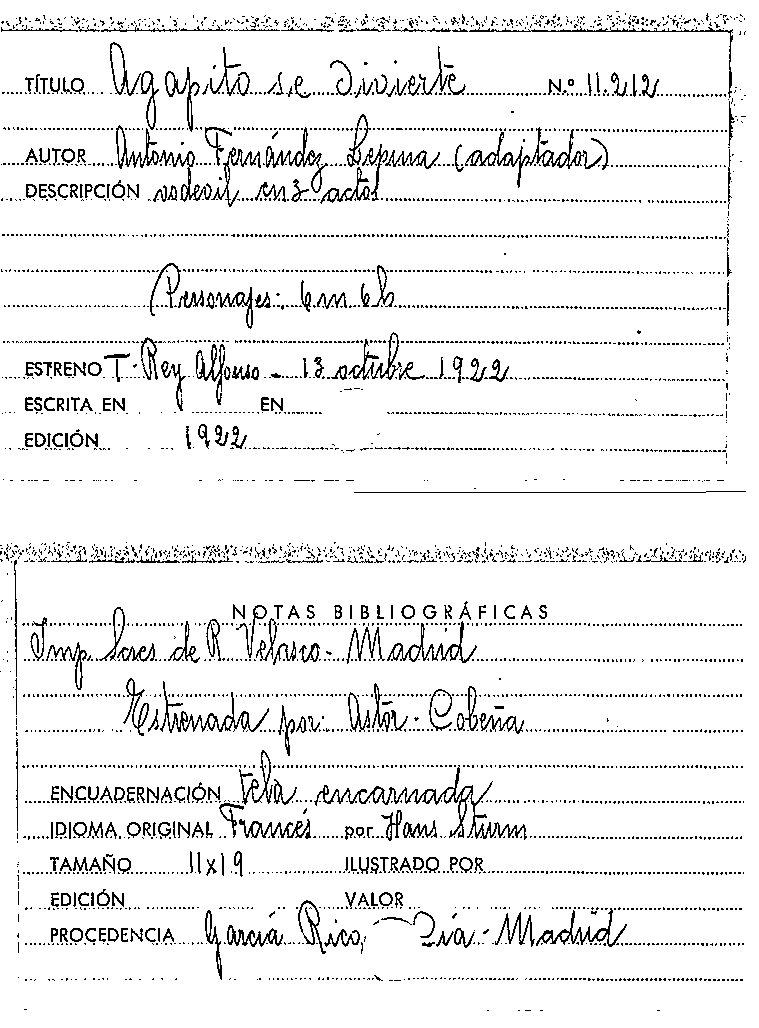 TÍTULO Agapito se divierte N.º 11.212
AUTOR Antonio Fernández Lepina (adaptador)
DESCRIPCIÓN vodevil en 3 actos
Personajes: 6 m 6 h
ESTRENO T. Rey Alfonso - 13 octubre 1922
ESCRITA EN EN
EDICIÓN 1922
NOTAS BIBLIOGRÁFICAS
Imp. Sores de R Velasco - Madrid
Estrenada por: Astor - Cobeña
ENCUADERNACIÓN tela encarnada
IDIOMA ORIGINAL Francés por Hans Sturm
TAMAÑO 11x19 ILUSTRADO POR
EDICIÓN VALOR
PROCEDENCIA García Rico, - Madrid